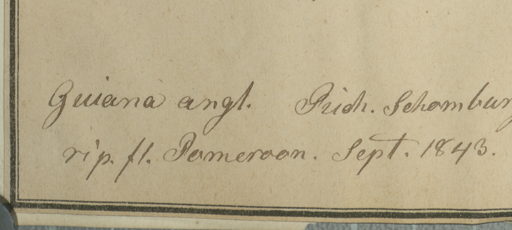 Guiana angl. Rich. Schomburg
rip. fl. Pomeroon. Sept. 1843.